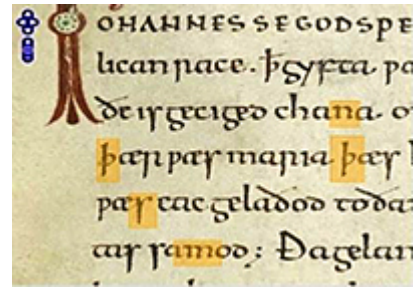 IOHANNES SE GODSPE
lican race. ꝥ gyfta ƿæ
ðe is geciged chana. o
þær ƿæs maria þæs
ƿæs eac gelaðod to ða
tas samod; Ða gelam